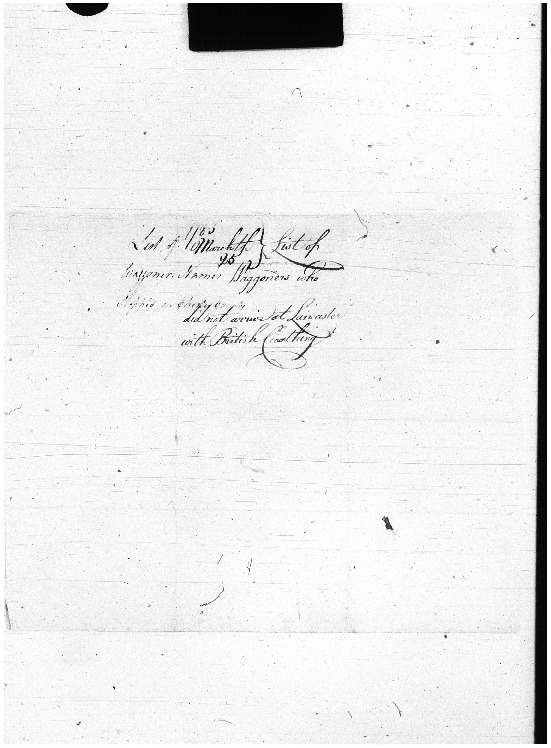 List of
1783
March 5th } List of
Waggoners Names Waggoners who
did not arrive at Lancaster
with British Cloathing